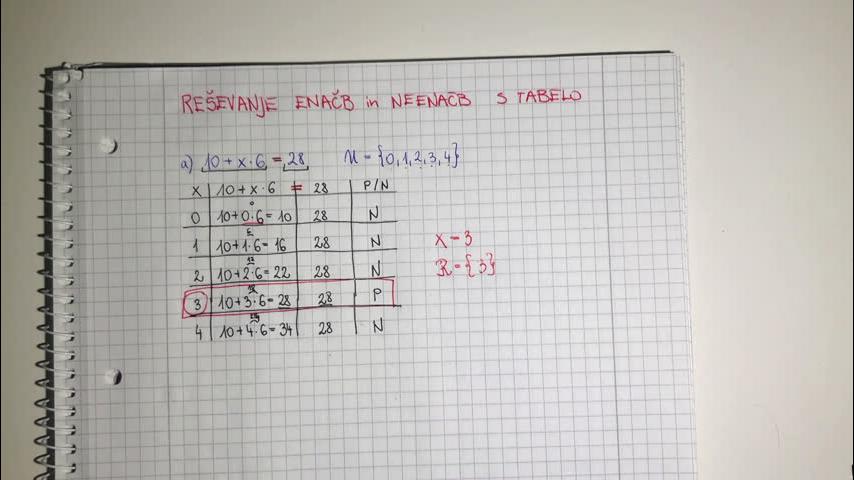 REŠEVANJE ENAČB in NEENAČB S TABELO
a) 10 + x · 6 = 28 U = {0, 1, 2, 3, 4}
x 10 + x · 6 = 28 P/N
0
0 10 + 0 · 6 = 10 28 N
6
1 10 + 1 · 6 = 16 28 N
x = 3
12
2 10 + 2 · 6 = 22 28 N
R = {3}
18
3 10 + 3 · 6 = 28 28 P
24
4 10 + 4 · 6 = 34 28 N